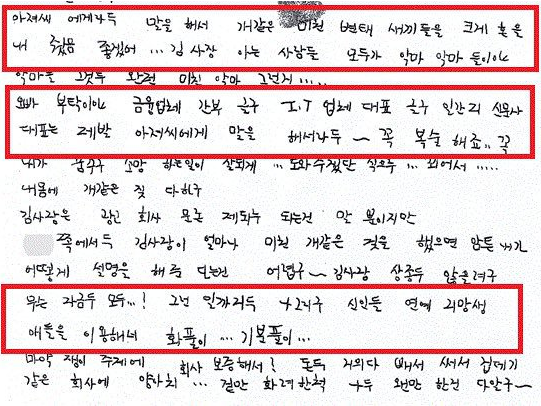 아저씨 에게라두 말을 해서 개같은 미친 변태 새끼들을 크게 혼을
내 줬음 좋겠어 ... 김 사장 아는 사람들 모두가 악마 악마 들이야
악마들 그것두 완전 미친 악마 그런거 ...
오빠 부탁이야 금융업체 간부 글구 I.T 업체 대표 글구 일간지 신문사
대표는 제발 아저씨에게 말을 해서라두 ~ 꼭 복수 해죠.. 꼭
내가 꿈꾸구 소망 하는일이 잘되게 ... 도와주겠단 식으루 ...
내몸에 개같은 짓 다하구
김사장은 회사 문논 제되누 되는건 말 뿐이지만
쪽에서두 김사장이 얼마나 미친 개같은 짓을 했으면 암튼 내가
어떻게 설명을 해 주 단는건 어렵구 ~ 김사장 상종두 않을려구
무슨 자금두 모두 ...! 그런 일까지두 그리구 신인들 연예 지망생
애들을 이용해서 화풀이 ... 기분풀이 ...
마약 쟁이 주제에 회사 보증해서! 돈두 거의다 뺏서 써서 껍데기
같은 회사에 양아치 ... 겉만 화려한척 +두 왠만 한건 다알구 ~